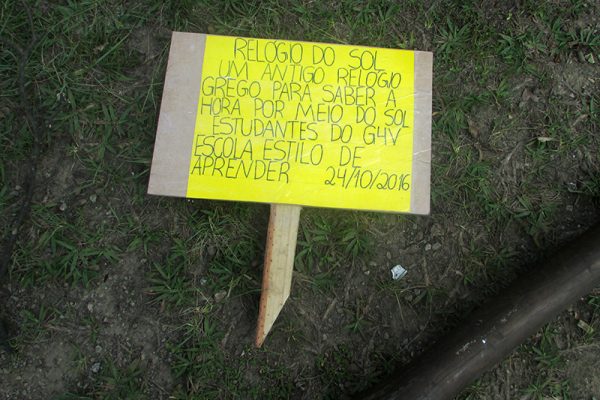 RELÓGIO DO SOL
UM ANTIGO RELÓGIO
GREGO PARA SABER A
HORA POR MEIO DO SOL
ESTUDANTES DO G4V
ESCOLA ESTILO DE
APRENDER 24/10/2016